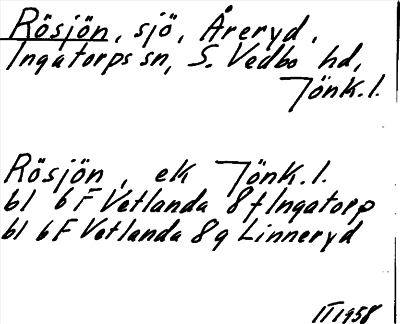 Rösjön, sjö, Åreryd,
Ingatorps sn, S. Vedbo hd,
Jönk.l.
Rösjön, ek Jönk.l.
bl 6F Vetlanda 8f Ingatorp
bl 6F Vetlanda 8g Linneryd
II 1958